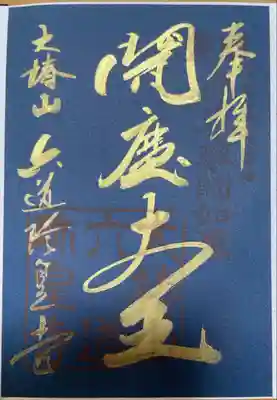 奉拝
閻魔大王
大椿山 六道珍皇寺